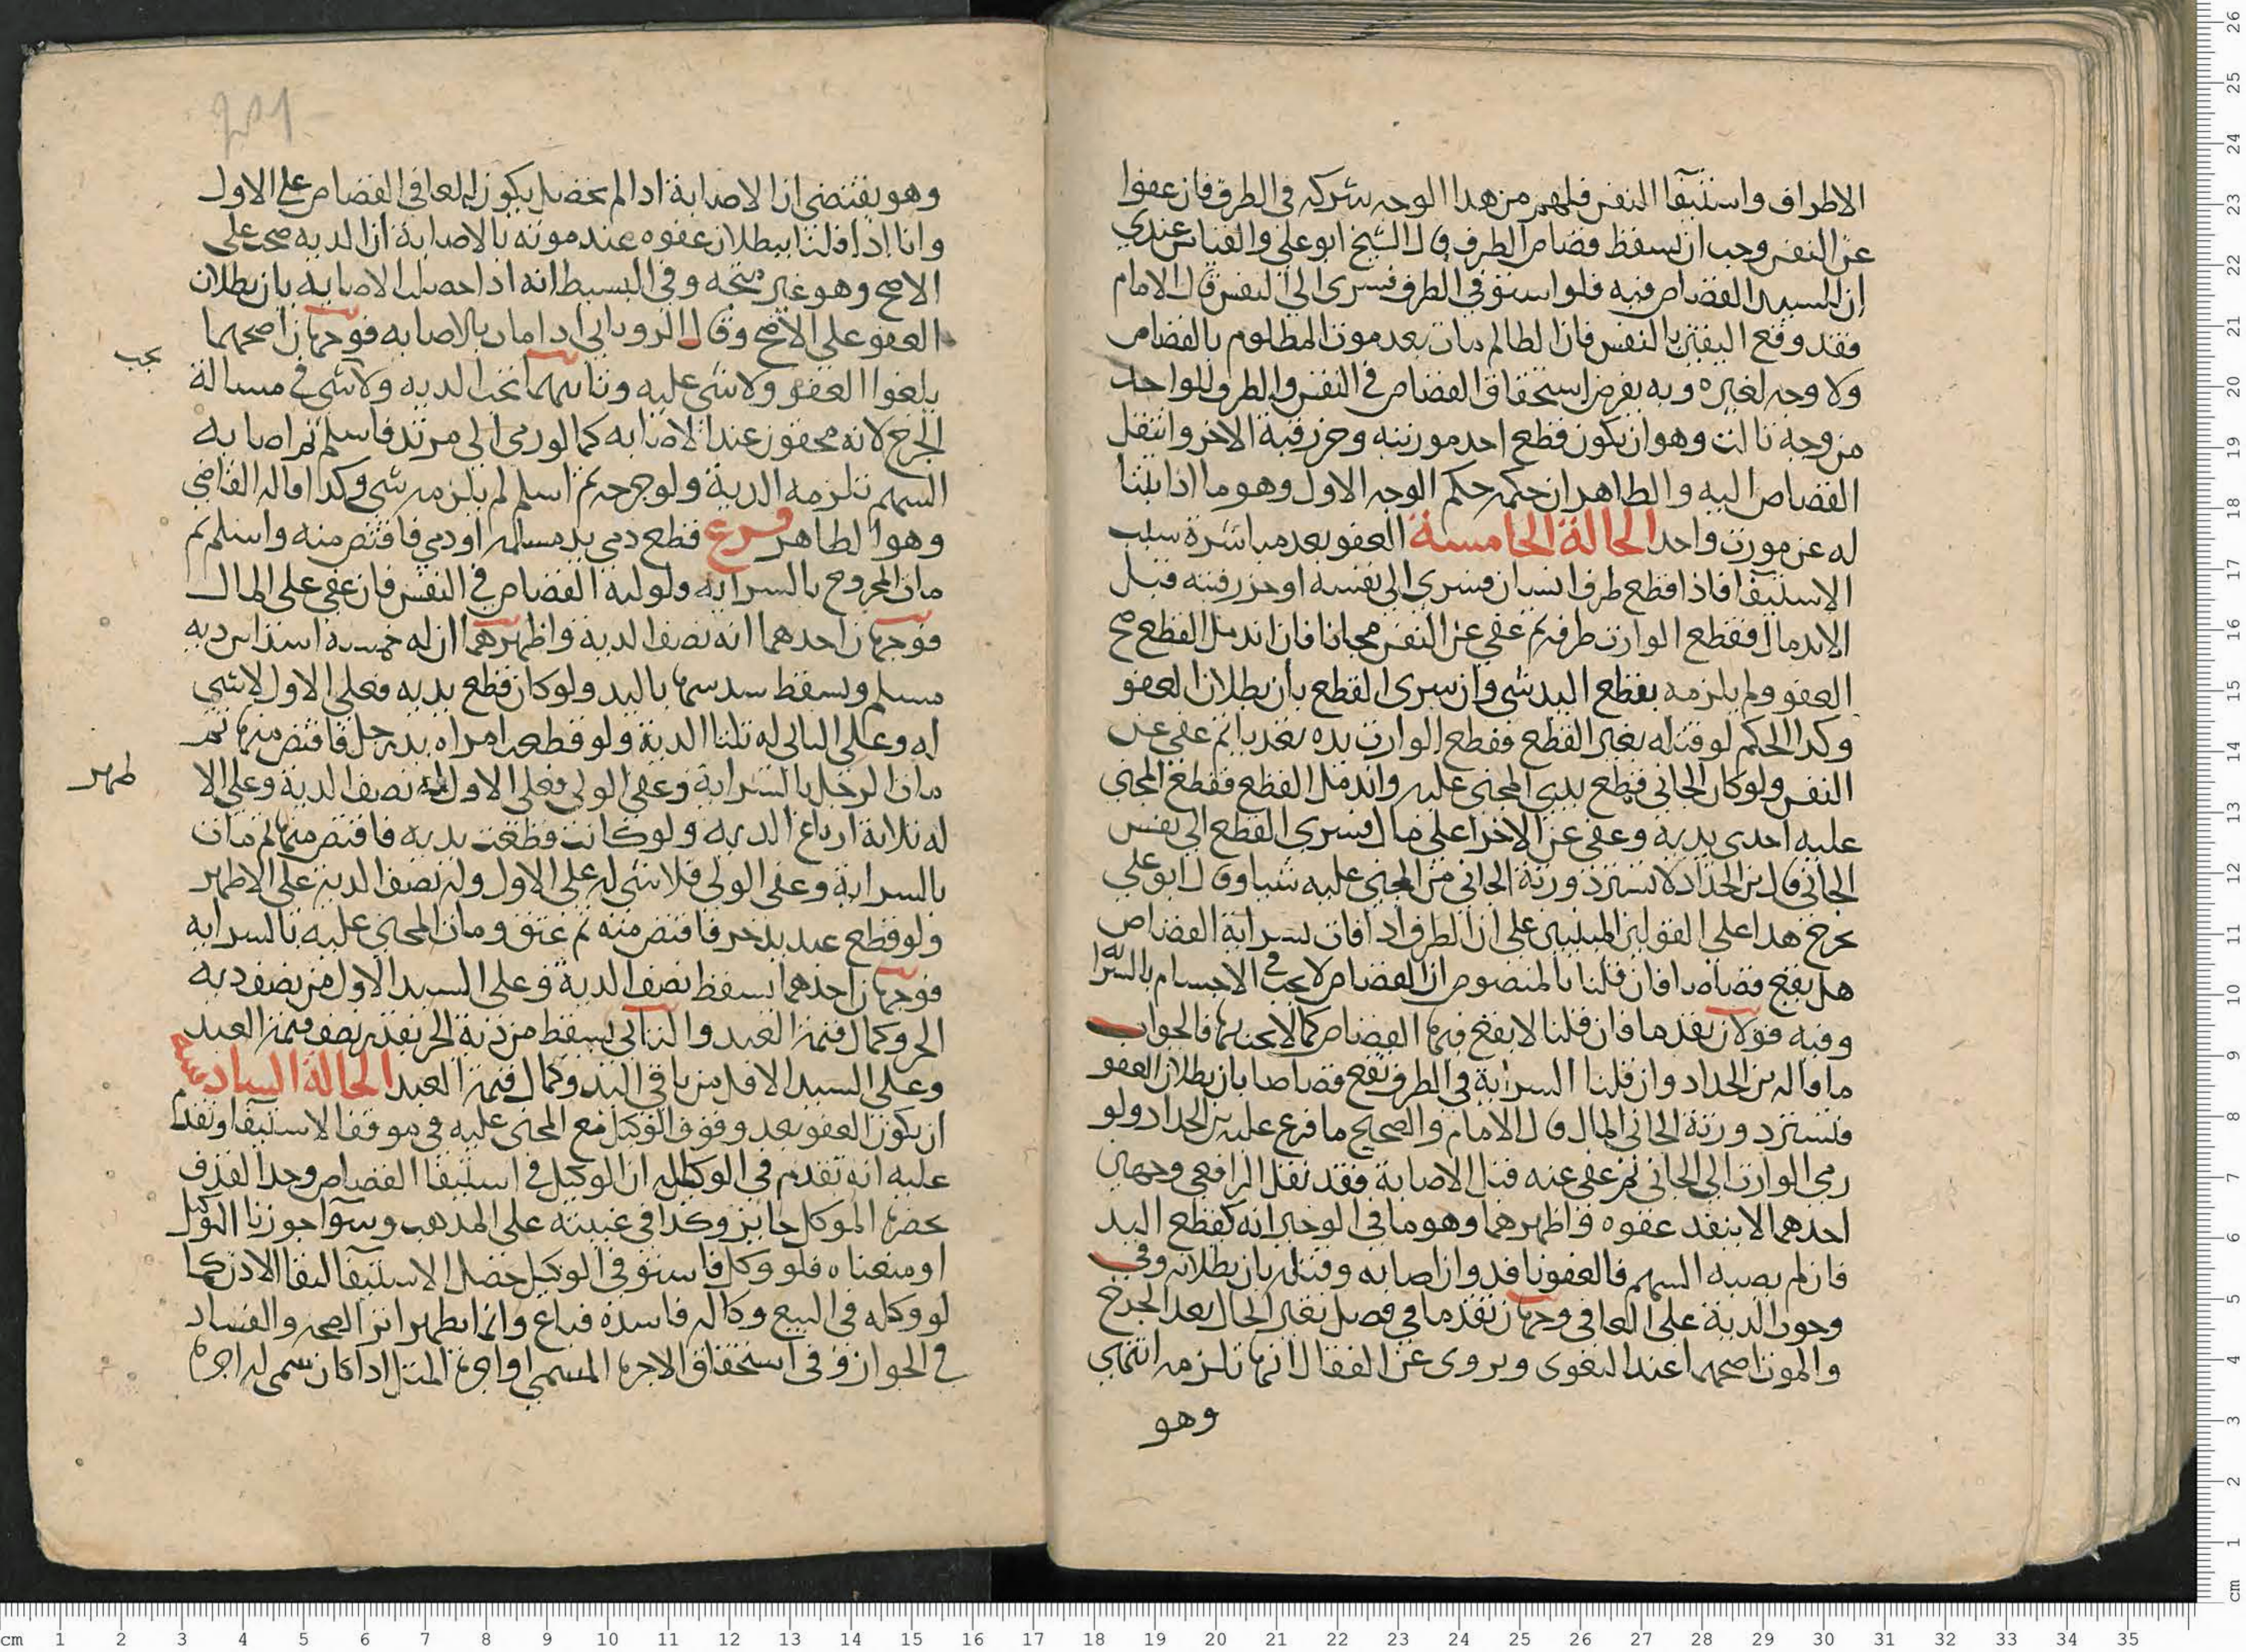 الاطراف واستيفا النفس فلهم من هذا الوجه شركه في الطرف فان عفوا
عن النفس وجب ان يسقط قصاص الطرف قال الشيخ ابو علي والقياس عندي
ان للسيد القصاص فيه فلو استوفي الطرف فسرى الى النفس قال الامام
فقد وقع النفس بالنفس فان الظالم مات بعد موت المظلوم بالقصاص
ولا وجه لغيره وبه يفرض استحقاق القصاص في النفس والطرف للواحد
من وجه ثالث وهو ان يكون قطع احد مورثيه وحز رقبة الاخر وانتقل
القصاص اليه والظاهر ان حكمه حكم الوجه الاول وهو ما اذا
له عن مورث واحد الحالة الخامسة العفو بعد مباشرة سبب
الاستيفا فاذا قطع طرف انسان فسرى الى نفسه او حز رقبته قبل
الاندمال فقطع الوارث طرفه ثم عفي عن النفس مجانا فان اندمل القطع صح
العفو ولم يلزمه بقطع اليد شي وان سرى القطع بان بطلان العفو
وكذا الحكم لو قتله بغير القطع فقطع الوارث يده تعديا ثم عفي عن
النفس ولو كان الجاني قطع يدي المجني عليه واندمل القطع فقطع المجني
عليه احدى يديه وعفي عن الاخرا على مال فسري القطع الي نفس
الجاني قال بن الحداد لا تسترد ورثة الجاني من المجني عليه شيا وقال ابو علي
يخرج هذا علي القولين المبنيين على ان الطرف اذا فات بسراية القصاص
هل يقع قصاصا فان قلنا بالمنصوص ان القصاص لا يجب في الاجسام بالسرا
وفيه قولان تقدما فان قلنا لا يقع فيها القصاص كما لا يجب بها فالجواب
ما قاله بن الحداد وان قلنا السراية في الطرف تقع قصاصا بان بطلان العفو
فتسترد ورثة الجاني المال قال الامام والصحيح ما فرع عليه بن الحداد ولو
رمى الوارث الى الجاني ثم عفي عنه قبل الاصابة فقد نقل الرافعي وجهين
احدهما لا ينفد عفوه واظهرهما وهو ما في الوجيز انه كقطع اليد
فان لم يصبه السهم فالعفو نافد وان اصابه وقتله بان بطلانه وفي
وجوب الدية على العافي وجهان تقدما في فصل تغير الحال بعد الجرح
والموت اصحهما عند البغوى ويروى عن القفال انها تلزمه انتهاي
وهو
وهو يقتضي ان الاصابة اذا لم تحصل يكون للعافي القصاص على الاول
وانا اذا قلنا ببطلان عفوه عند موته بالاصابة ان الدية صح على
الاصح وهو غير متجه وفي البسيط انه اذا حصلت الاصابه بان بطلان
العفو على الاصح وقال الروياني اذا مات بالاصابه فوجهان اصحهما
يجب
يلغوا العفو ولا شي عليه وثانيهما تجب الديه ولا شي في مسالة
الجرح لانه محقون عند الاصابه كما لو رمى الى مرتد فاسلم ثم اصابه
السهم تلزمه الدية ولو جرحه ثم اسلم لم يلزمه شي وكذا قاله القاضي
وهو الظاهر فرع قطع دمي يد مسلم او دمي فاقتص منه واسلم ثم
مات المجروح بالسرايه ولوليه القصاص في النفس فان عفي على المال
فوجهان احدهما انه نصف الدية واظهرهما ان له خمسة اسداس ديه
مسلم ويسقط سدسها باليد ولو كان قطع يديه فعلى الاول لا شي
له وعلى الثاني له ثلثا الدية ولو قطعت امراه يد رجل فاقتص منها ثم
مات الرجل بالسراية وعفي الولي فعلى الاول له نصف الدية وعلى الا
ظهر
له ثلاثة ارباع الديه ولو كانت قطعت يديه فاقتص منها ثم مات
بالسراية وعفي الولي فلا شي له على الاول وله نصف الدية على الاظهر
ولو قطع عبد يد حر فاقتص منه ثم عتق ومات المجني عليه بالسرايه
فوجهان احدهما يسقط نصف الدية وعلى السيد الاقل من نصف ديه
الحر وكمال قيمة العبد والثاني يسقط من دية الحر بقدر نصف قيمة العبد
وعلى السيد الاقل من باقي اليد وكمال قيمة العبد الحالة السادسة
ان يكون العفو بعد وقوف الوكيل مع المجني عليه في موقف الاستيفا وتقدم
عليه انه تقدم في الوكاله ان الوكيل في استيفا القصاص وحد القذف
بحضرة الموكل جايز وكذا في غيبته على المذهب وسوا جوزنا التوكيل
او منعناه فلو وكل فاستوفي الوكيل حصل الاستيفا لبقا الاذن كما
لو وكله في البيع وكاله فاسدة فباع وانما يظهر اثر الصحه والفساد
في الجواز وفي استحقاق الاجرة المسمي او اجرة المثل اذا كان سمى له اجرة